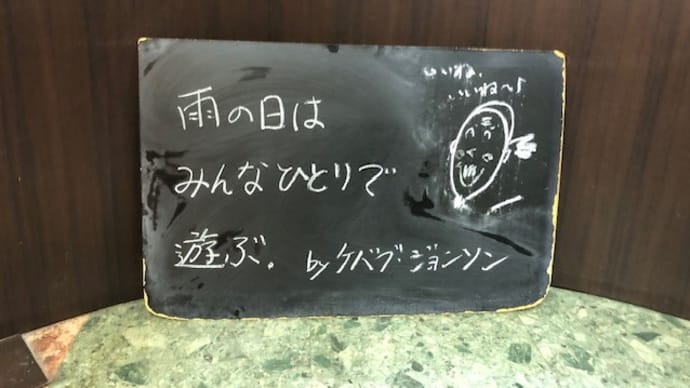 雨の日は
みんなひとりで
遊ぶ。 byケバブ・ジョンソン
いいね、
いいね〜♪